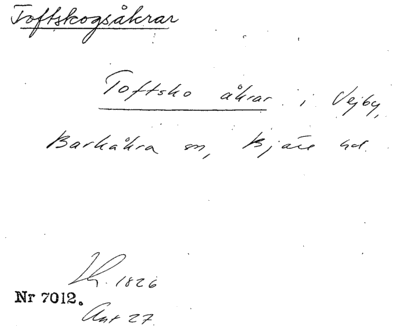 Toftskogsåkrar
Toftsko åkrar i Vejby,
Barkåkra sn, Bjäre hd.
Lh. 1826
Nr 7012.
Akt 27.